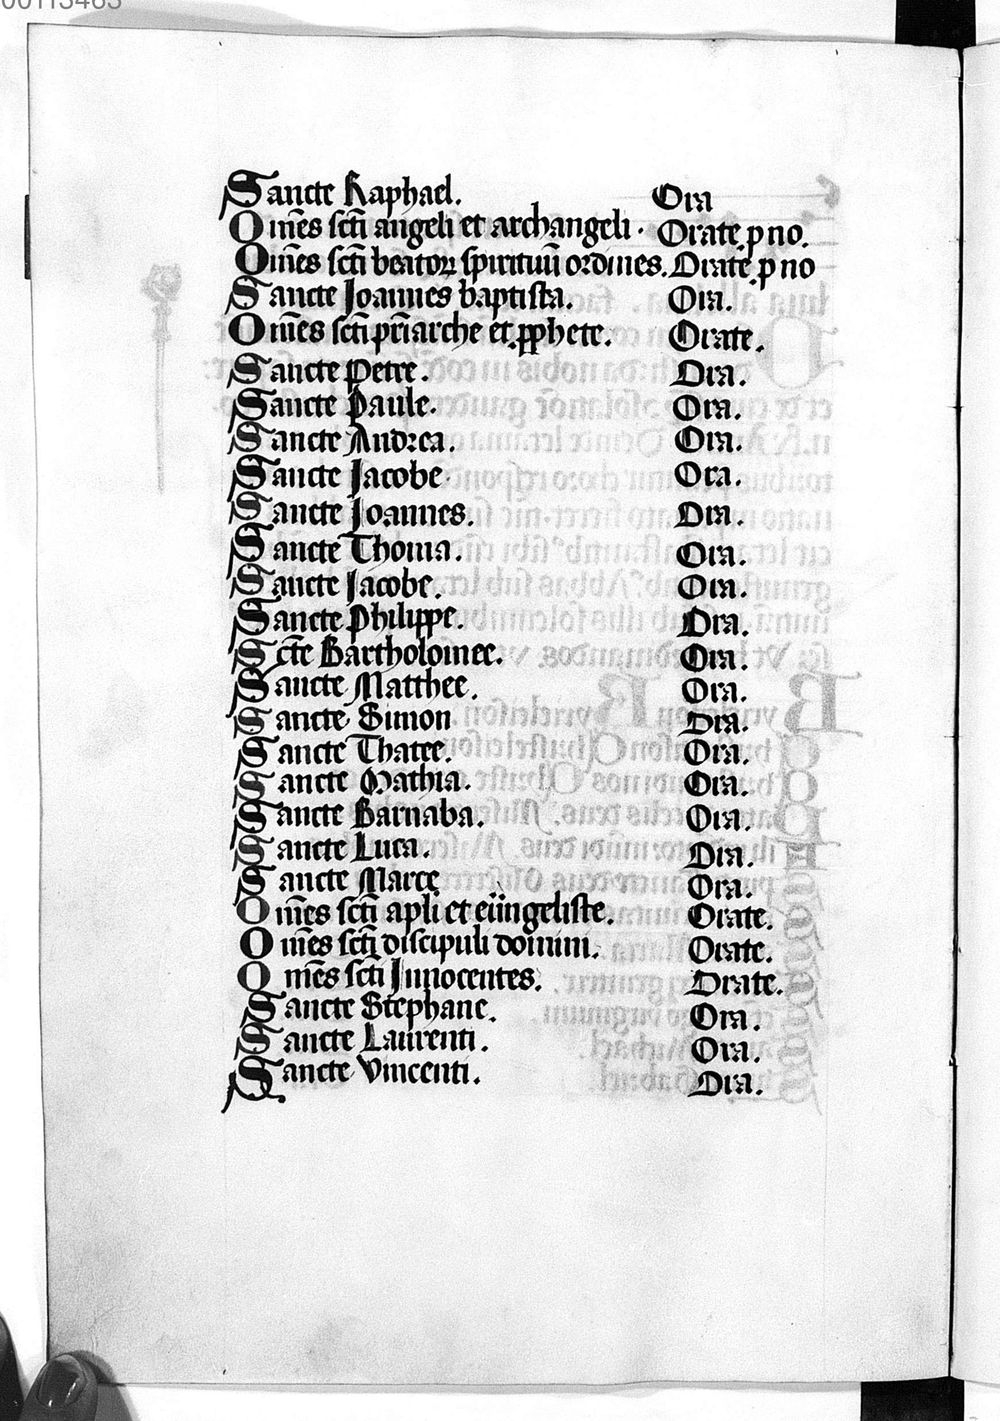 00113463
Sancte Raphael. Ora
Om̄es sct̄i angeli et archangeli. Orate p no.
Om̄es sct̄i beatoꝝ spirituū ordines. Orate p no
Sancte Joannes baptista. Ora.
Om̄es sct̄i pr̄iarche et pphete. Orate.
Sancte Petre. Ora.
Sancte Paule. Ora.
Sancte Andrea. Ora.
Sancte Jacobe. Ora.
Sancte Joannes. Ora.
Sancte Thoma. Ora.
Sancte Jacobe. Ora.
Sancte Philippe. Ora.
Sct̄e Bartholomee. Ora.
Sancte Matthee. Ora.
Sancte Simon Ora.
Sancte Thatee. Ora.
Sancte Mathia. Ora.
Sancte Barnaba. Ora.
Sancte Luca. Ora.
Sancte Marce Ora.
Om̄es sct̄i apl̄i et eūngeliste. Orate.
Om̄es sct̄i discipuli domini. Orate.
Om̄es sct̄i Innocentes. Orate.
Sancte Stephane. Ora.
Sancte Laurenti. Ora.
Sancte Vincenti. Ora.